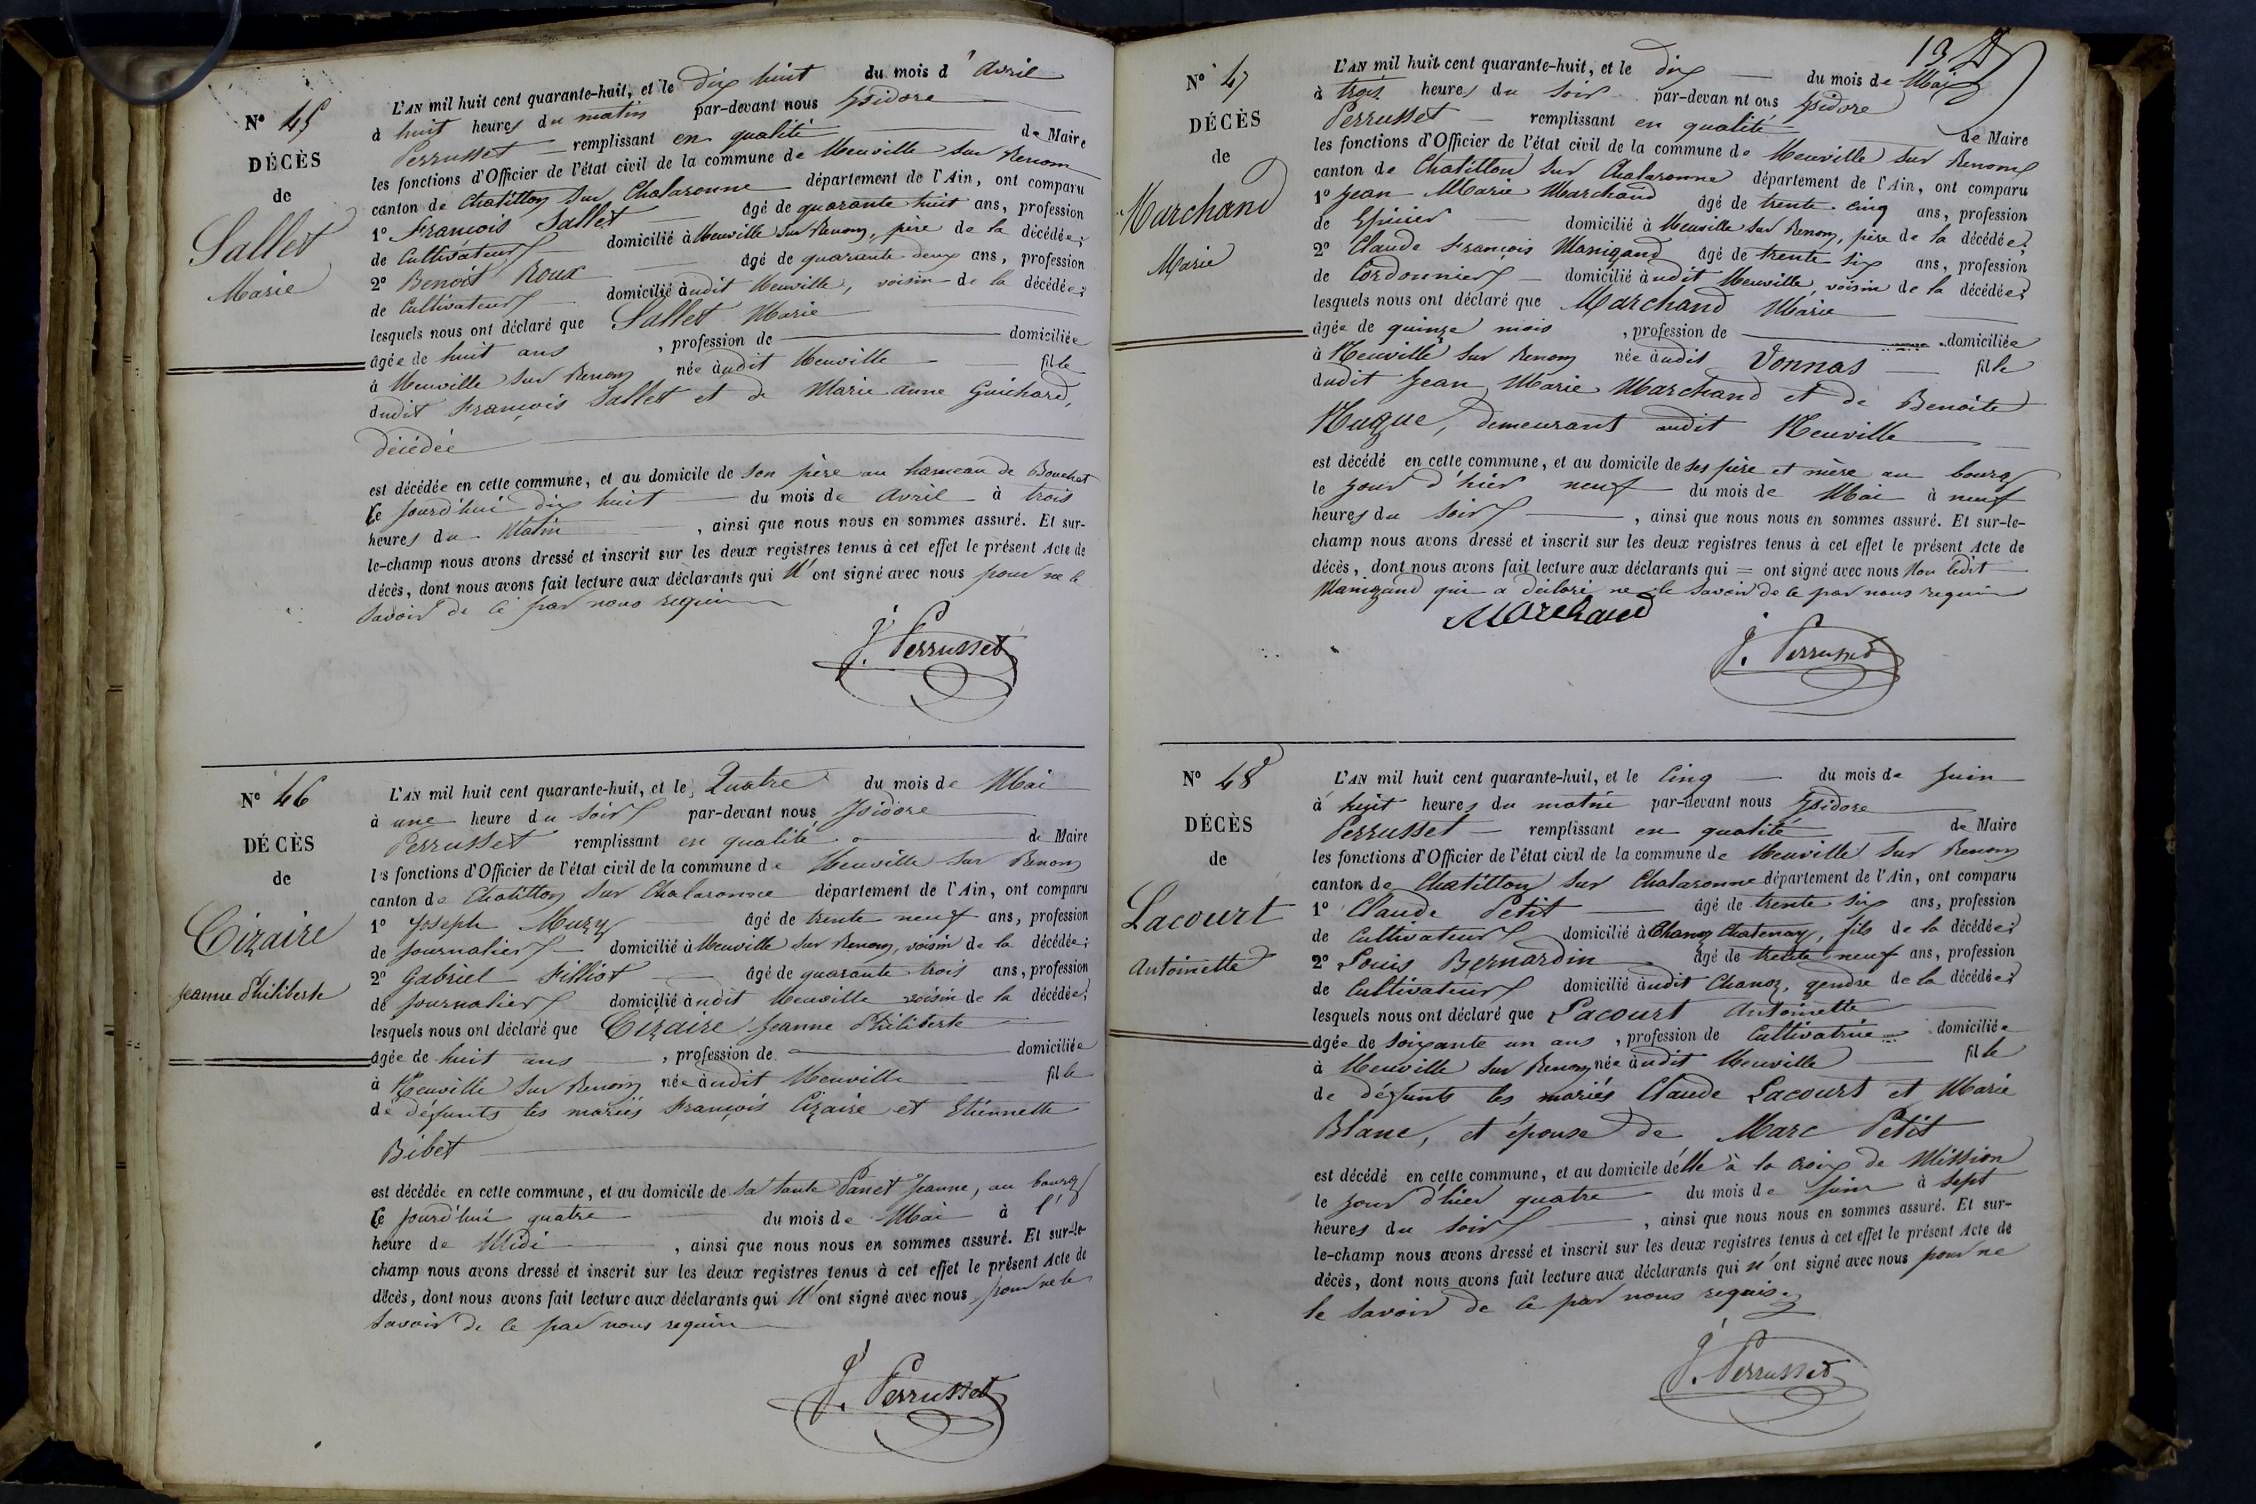 N° 45
DÉCÈS
de
Sallet
Marie
L'AN mil huit cent quarante-huit, et le dix huit du mois d'Avril
à huit heures du matin par-devant nous Ysidore
Perrusset remplissant en qualité de Maire
les fonctions d'Officier de l'état civil de la commune de Neuville sur Renom
canton de Chatillon sur Chalaronne département de l'Ain, ont comparu
1° François Sallet âgé de quarante huit ans, profession
de Cultivateur domicilié à Neuville sur Renom, père de la décédée;
2° Benoit Roux âgé de quarante deux ans, profession
de Cultivateur domicilié audit Neuville, voisin de la décédée;
lesquels nous ont déclaré que Sallet Marie
âgée de huit ans , profession de domiciliée
à Neuville sur Renom née audit Neuville fille
dudit François Sallet et de Marie anne Guichard,
décédée
est décédée en cette commune, et au domicile de son père au hameau de Bouchet
Ce jourd'hui dix huit du mois de Avril à trois
heures du Matin , ainsi que nous nous en sommes assuré. Et sur-
le-champ nous avons dressé et inscrit sur les deux registres tenus à cet effet le présent Acte de
décès, dont nous avons fait lecture aux déclarants qui n'ont signé avec nous pour ne le
savoir de ce par nous requis
J. Perrusset
N° 46
DÉCÈS
de
Cizaire
Jeanne Philiberte
L'AN mil huit cent quarante-huit, et le Quatre du mois de Mai
à une heure du soir par-devant nous Ysidore
Perrusset remplissant en qualité de Maire
les fonctions d'Officier de l'état civil de la commune de Neuville sur Renom
canton de Chatillon sur Chalaronne département de l'Ain, ont comparu
1° Joseph Muzy âgé de trente neuf ans, profession
de Journalier domicilié à Neuville sur Renom, voisin de la décédée;
2° Gabriel Filliot âgé de quarante trois ans, profession
de Journalier domicilié audit Neuville voisin de la décédée;
lesquels nous ont déclaré que Cizaire Jeanne Philiberte
âgée de huit ans , profession de domiciliée
à Neuville sur Renom née audit Neuville fille
de défunts les mariés François Cizaire et Etiennette
Bibet
est décédée en cette commune, et au domicile de sa tante Panet Jeanne, au bourg
Ce jourd'hui quatre du mois de Mai à l'
heure de Midi , ainsi que nous nous en sommes assuré. Et sur-le-
champ nous avons dressé et inscrit sur les deux registres tenus à cet effet le présent Acte de
décès, dont nous avons fait lecture aux déclarants qui n'ont signé avec nous pour ne le
savoir de ce par nous requis
J. Perrusset
13
N° 47
DÉCÈS
de
Marchand
Marie
L'AN mil huit cent quarante-huit, et le dix du mois de Mai
à trois heures du soir par-devan nt ous Ysidore
Perrusset remplissant en qualité de Maire
les fonctions d'Officier de l'état civil de la commune de Neuville sur Renom
canton de Chatillon sur Chalaronne département de l'Ain, ont comparu
1° Jean Marie Marchand âgé de trente cinq ans, profession
de Epicier domicilié à Neuville sur Renom, père de la décédée;
2° Claude François Manigand âgé de trente six ans, profession
de Cordonnier domicilié audit Neuville, voisin de la décédée;
lesquels nous ont déclaré que Marchand Marie
âgée de quinze mois , profession de domiciliée
à Neuville sur Renom née audit Vonnas fille
dudit Jean Marie Marchand et de Benoîte
Hugue, demeurant audit Neuville
est décédé en cette commune, et au domicile de ses père et mère au bourg
le jour d'hier neuf du mois de Mai à neuf
heures du soir , ainsi que nous nous en sommes assuré. Et sur-le-
champ nous avons dressé et inscrit sur les deux registres tenus à cet effet le présent Acte de
décès, dont nous avons fait lecture aux déclarants qui = ont signé avec nous Non ledit
Manigand qui a déclaré ne le savoir de ce par nous requis
Marchand
J. Perrusset
N° 48
DÉCÈS
de
Lacourt
Antoinette
L'AN mil huit cent quarante-huit, et le Cinq du mois de Juin
à huit heures du matin par-devant nous Ysidore
Perrusset remplissant en qualité de Maire
les fonctions d'Officier de l'état civil de la commune de Neuville sur Renom
canton de Chatillon sur Chalaronne département de l'Ain, ont comparu
1° Claude Petit âgé de trente six ans, profession
de Cultivateur domicilié à Chanoz Chatenay, fils de la décédée;
2° Louis Bernardin âgé de trente neuf ans, profession
de Cultivateur domicilié audit Chanoz, gendre de la décédée;
lesquels nous ont déclaré que Lacourt Antoinette
âgée de soixante un ans , profession de Cultivatrice domiciliée
à Neuville sur Renom née audit Neuville fille
de défunts les mariés Claude Lacourt et Marie
Blanc, et épouse de Marc Petit
est décédé en cette commune, et au domicile d'elle à la croix de Mission
le jour d'hier quatre du mois de Juin à sept
heures du soir , ainsi que nous nous en sommes assuré. Et sur-
le-champ nous avons dressé et inscrit sur les deux registres tenus à cet effet le présent Acte de
décès, dont nous avons fait lecture aux déclarants qui n'ont signé avec nous pour ne
le savoir de ce par nous requis.
J. Perrusset